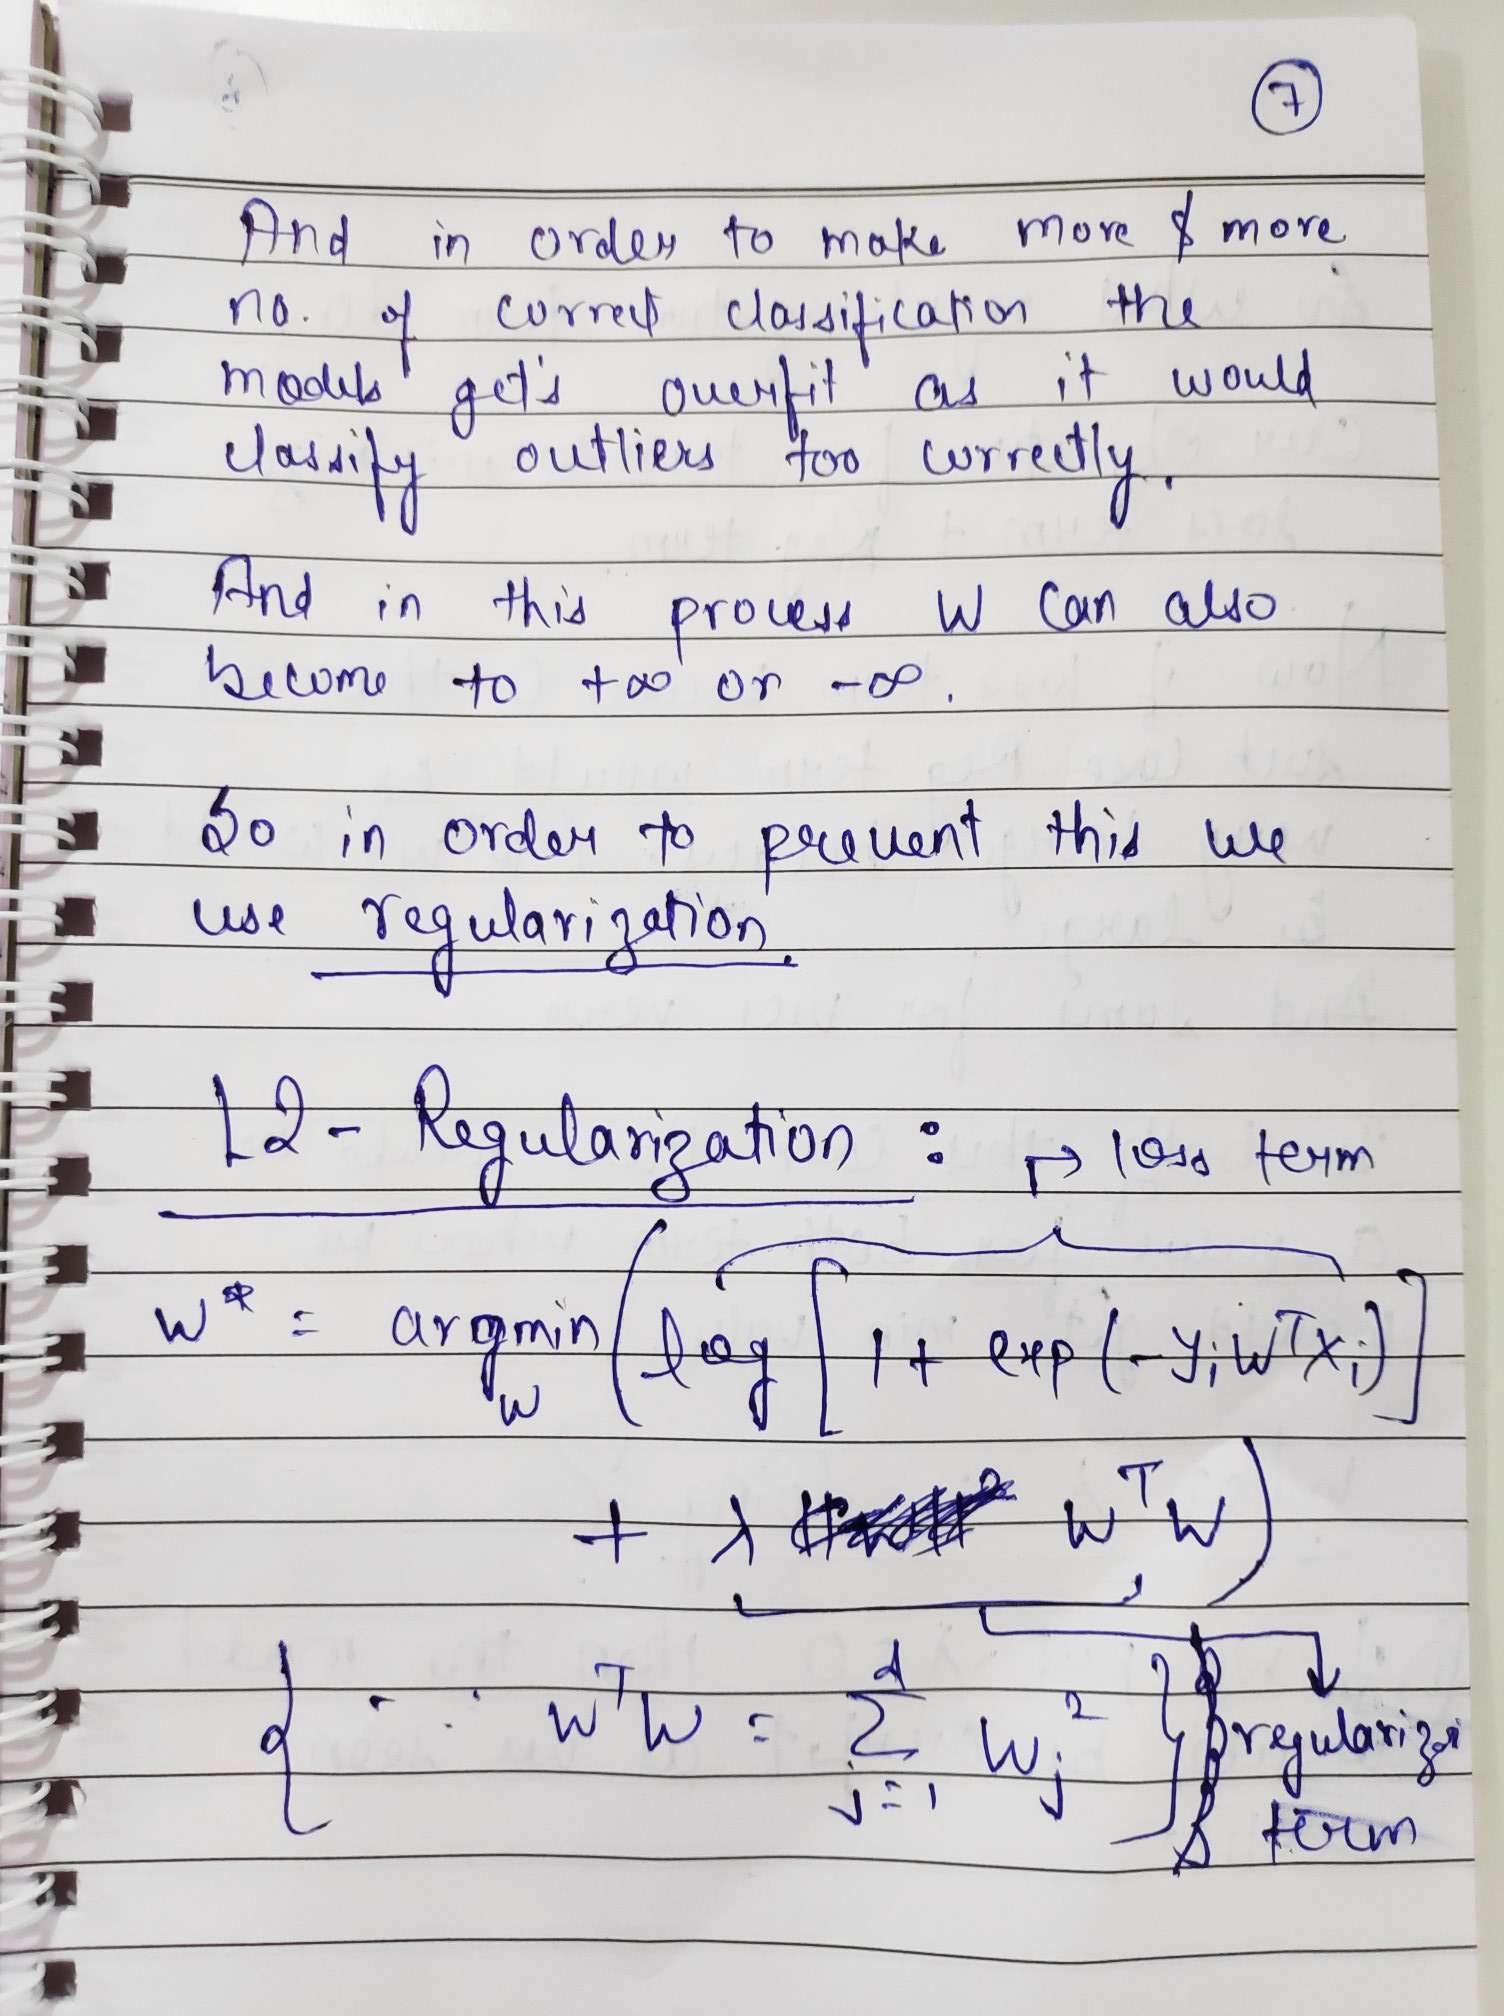 7
And in order to make more & more
no. of correct classification the
models get's overfit as it would
classify outliers too correctly.
And in this process W can also
become to +∞ or -∞.
So in order to prevent this we
use regularization.
L2 - Regularization : → loss term
W* = argmin_W ( log [ 1 + exp (- y_i W^T x_i) ]
+ λ W^T W )
{ ∵ W^T W = Σ_{j=1}^{d} W_j^2 } regularizi
term